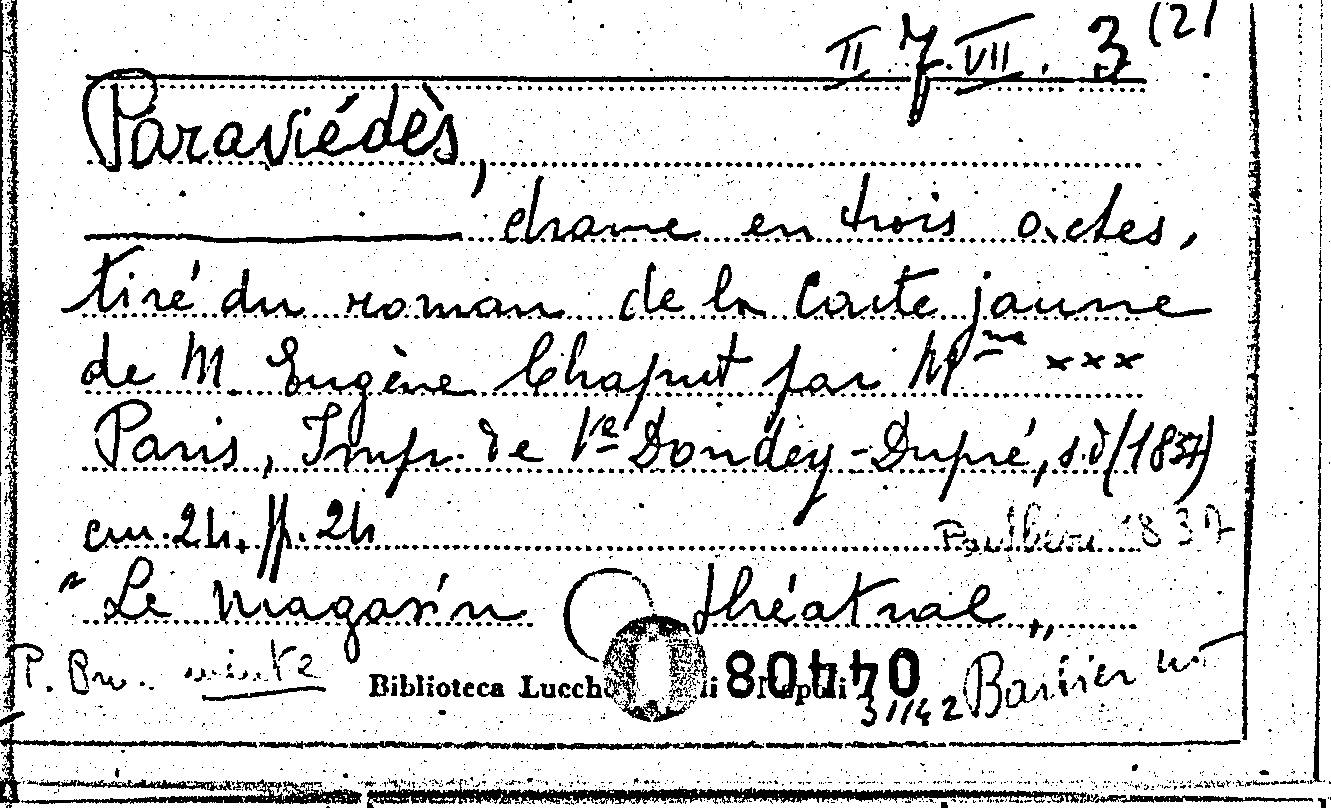 II 7. VII. 3 (2)
Paraviédès,
drame en trois actes,
tiré du roman de la Carte jaune
de M. Eugène Chaput par Mme xxx
Paris, Imp. de Ve Dondey-Dupré, s.d (1837)
cm. 24. pp. 24
1837
"Le magasin théatral"
P. Bru.
Biblioteca Lucch li Napoli 80440
31142 Barbier